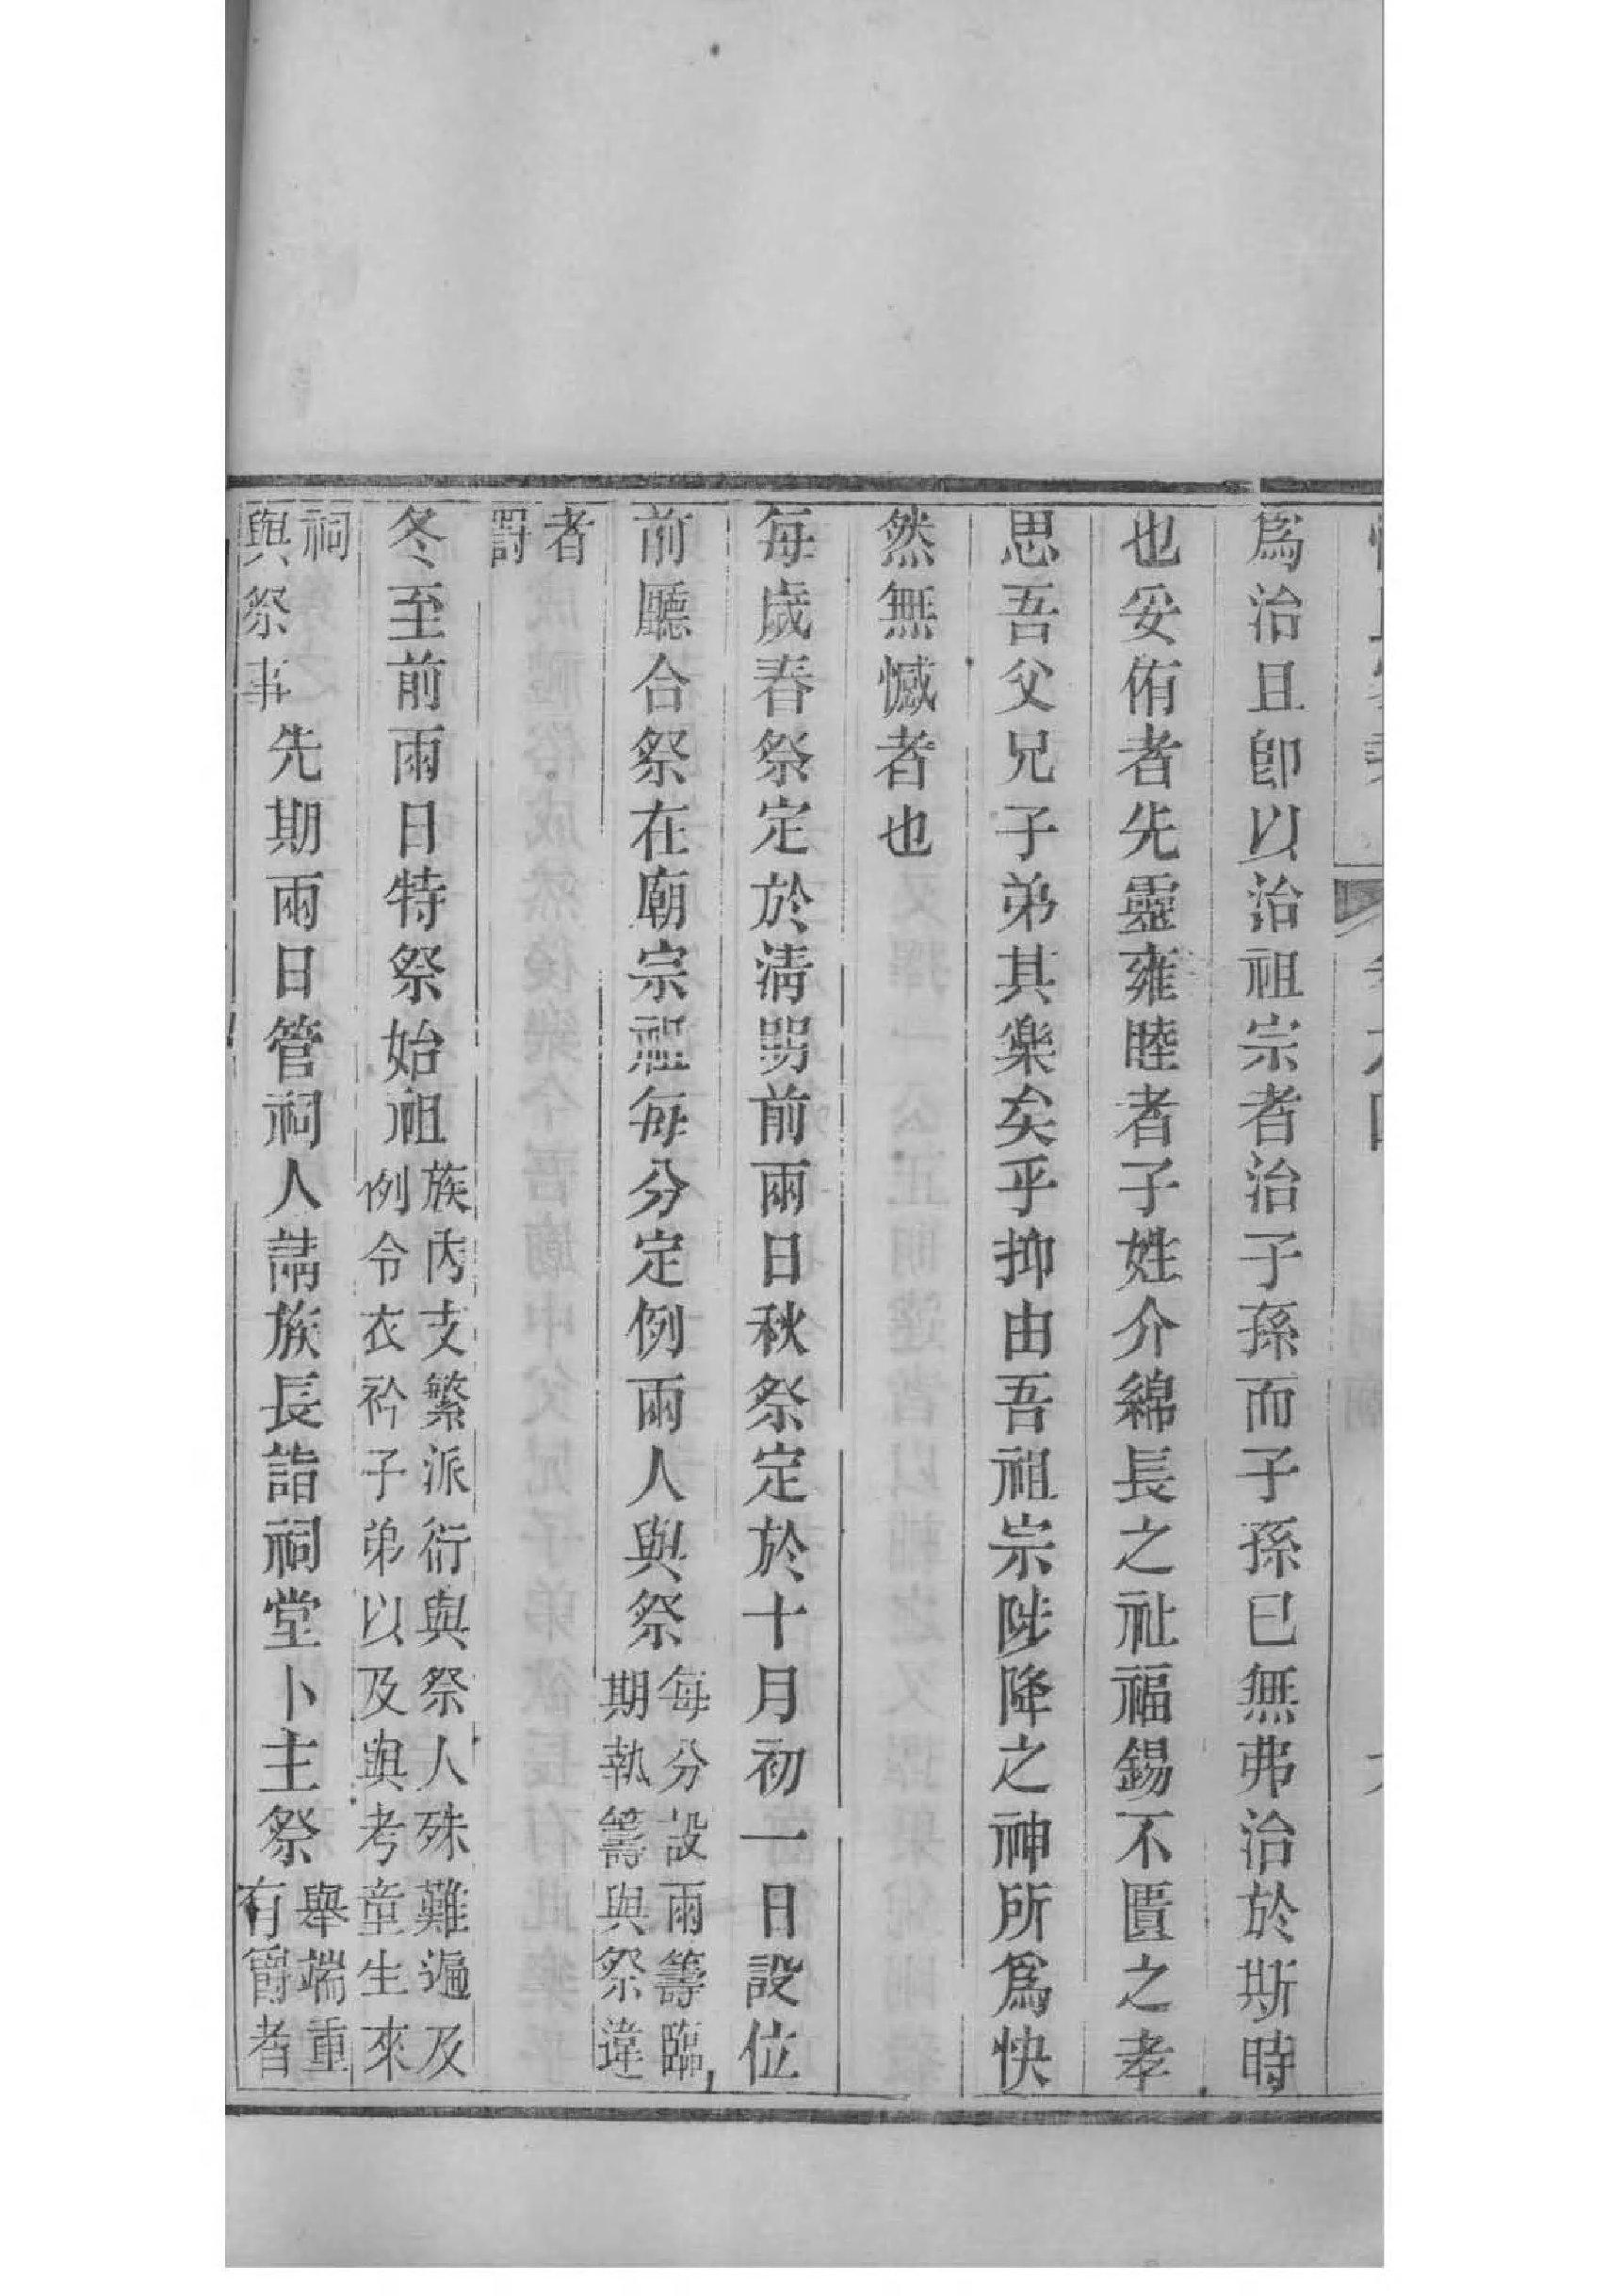 爲治且卽以治祖宗者治子孫而子孫已無弗治於斯時
也妥侑者先靈雍睦者子姓介綿長之祉福錫不匱之孝
思吾父兄子弟其樂矣乎抑由吾祖宗陟降之神所爲快
然無憾者也
每歲春祭定於淸明前兩日秋祭定於十月初一日設位
前廳合祭在廟宗祖每分定例兩人與祭每分設兩籌臨期執籌與祭違
者罰
冬至前兩日特祭始祖族内支繁派衍與祭人殊難遍及例令衣衿子弟以及與考童生來
祠與祭事先期兩日管祠人請族長詣祠堂卜主祭舉端重有爵者